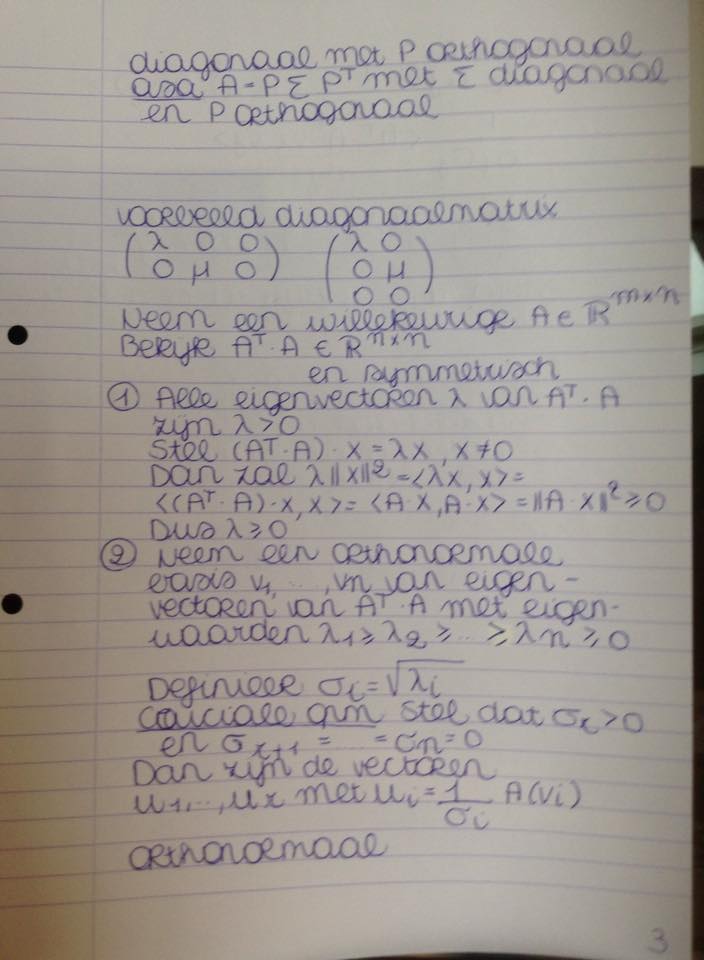 diagonaal met P orthogonaal
asa A = P Σ Pᵀ met Σ diagonaal
en P orthogonaal
voorbeeld diagonaalmatrix
(λ 0 0 / 0 μ 0) (λ 0 / 0 μ / 0 0)
Neem een willekeurige A ∈ ℝᵐˣⁿ
Bekijk Aᵀ·A ∈ ℝⁿˣⁿ
en symmetrisch
① Alle eigenvectoren λ van Aᵀ·A
zijn λ > 0
Stel (Aᵀ·A)·x = λx, x ≠ 0
Dan zal λ||x||² = <λx, x> =
<(Aᵀ·A)·x, x> = <A·x, A·x> = ||A·x||² ≥ 0
Dus λ ≥ 0
② Neem een orthonormale
basis v₁, ..., vn van eigen-
vectoren van Aᵀ·A met eigen-
waarden λ₁ ≥ λ₂ ≥ ... ≥ λn ≥ 0
Definieer σi = √λi
Cruciale opm stel dat σr > 0
en σr+1 = ... = σn = 0
Dan zijn de vectoren
u₁, ..., ur met ui = 1/σi A(vi)
orthonormaal
3